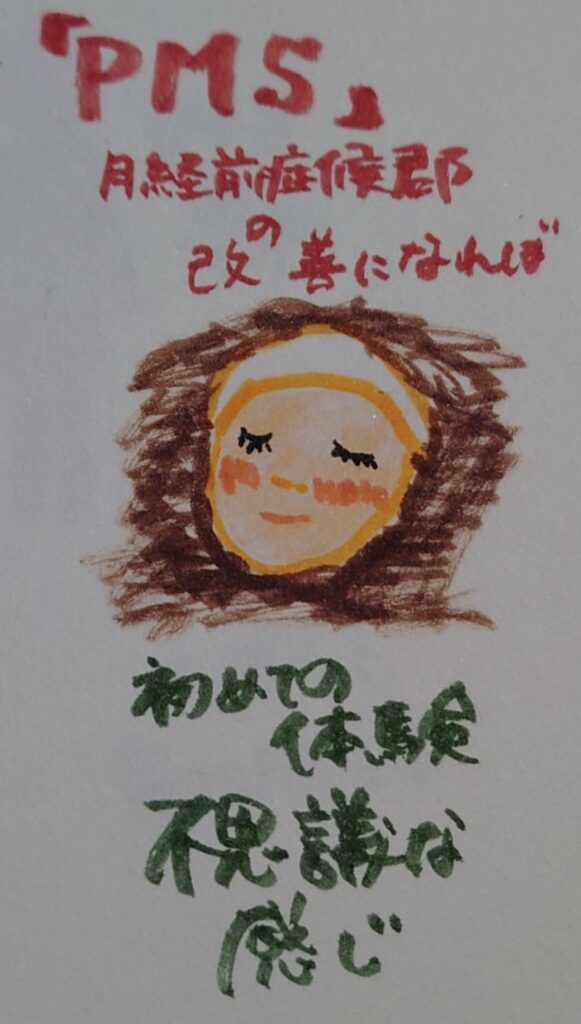 「PMS」
月経前症候郡
の
改善になれば
初めての
体験
不思議な
感じ